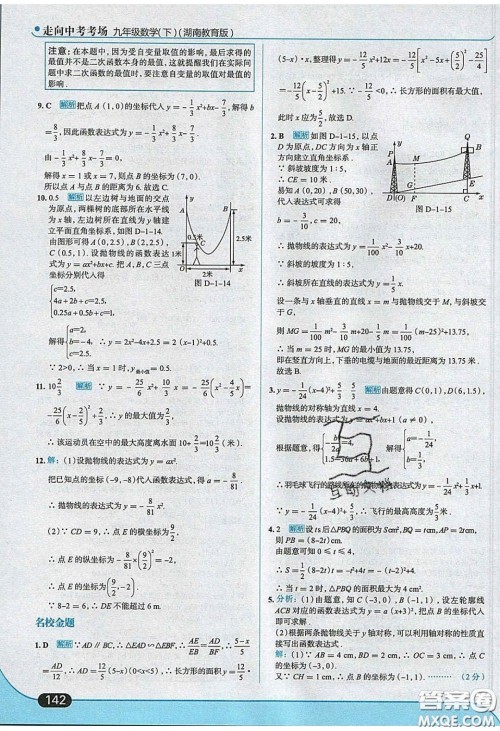 走向中考考场 九年级数学(下)(湖南教育版)
注意:在本题中,因为受自变量取值的影响,最后求得的
最值并不是二次函数本身的最值,这就提醒我们在实际问
题中求二次函数的最值时,要注意自变量的取值对最值的
影响.
9. C 解析 把点 A(1,0)的坐标代入 y=-1/3x²+bx-8/3,得 b
=8/3,因此函数表达式为 y=-1/3x²+8/3x-7/3.
由-1/3x²+8/3x-7/3=0,
解得 x=1 或 x=7,则点 B 的坐标为(7,0).
所以点 A 与点 B 的距离为 6.故选 C.
10. 0.5 解析 以左边树与地面的交点
为原点,两棵树的底部所在水平线
为 x 轴,左边树所在直线为 y 轴建
立平面直角坐标系,如图 D-1-14.
由图形可得 A(0,2.5),B(2,2.5),
C(0.5,1).设抛物线的函数表达
式为 y=ax²+bx+c.把 A,B,C 三点
坐标分别代入得
{c=2.5,
4a+2b+c=2.5,
0.25a+0.5b+c=1.
解得{a=2,
b=-4,
c=2.5.
∴ y=2x²-4x+2.5=2(x-1)²+0.5.
∵ 2>0,∴ 当 x=1 时,y最小值=0.5(米).
图 D-1-14
11. 10 2/3 解析 y=-25/6x²+10/3x=-25/6(x²-4/5x)=
-25/6(x-2/5)²+2/3,∴ y 的最大值为 2/3.
∴ 该运动员在空中的最大高度离水面 10+2/3=10 2/3(米).
12. 解:(1)设抛物线的表达式为 y=ax².
把已知点的坐标(-9,-8)代入函数表达式,得 a=-8/81.
∴ 抛物线的表达式为 y=-8/81x².
(2)∵ CD=9,∴ 点 E 的横坐标为 9/2.
∴ 点 E 的纵坐标为-8/81×(9/2)²=-2.
∴ 点 E 的坐标为(9/2,-2).
∵ 8-2=6,∴ DE=6 m.
名校金题
1. D 解析 ∵ AD∥BC,∴ △AED∽△EBF,∴ AE/EB=AD/BF,∴ (5-x)/x=
AD/12,∴ AD=12/5(5-x)(0<x<5),∴ S=AD·x=12/5
(5-x)·x=-12/5[(x-5/2)²-25/4]=-12/5(x-5/2)²
+15.∵ -12/5<0,∴ 长方形的面积有最大值,
此时 x 应为 5/2,故选 D.
2. B 解析 如图 D-1-15,以点
D 为原点,DC 方向为 x 轴正
方向建立直角坐标系.
∵ 斜坡的坡度为 1:5,
∴ CE=10 米.
易知点 A(0,20),B(50,30),
代入得
图 D-1-15
∴ 抛物线的表达式为 y=1/100x²-3/10x+20.
∵ 斜坡的坡度为 1:5,
∴ 斜坡的表达式为 y=1/5x.
设一条与 x 轴垂直的直线 x=m 与抛物线交于 M,与斜坡交
于 G,
则 MG=1/100m²-3/10m+20-1/5m=1/100(m-25)²+13.75,
∴ 当 m=25 时,MG 的最小值为 13.75,
即在竖直方向上,下垂的电缆与地面的最近距离为 13.75 米.
故选 B.
3. y=-1/24(x-4)²+5/3 5/3 解析 由题意得 C(0,1),D(6,1.5),
抛物线的对称轴为直线 x=4.
设抛物线的表达式为 y=ax²+bx+1(a≠0),
∴ 羽毛球飞行的路线所在的抛物线的表达式为 y=-1/24x²
+1/3x+1=-1/24(x-4)²+5/3,∴ 飞行的最高高度为 5/3 米.
4. 2 解析 设 ts 后△PBQ 的面积为 S cm²,BQ=t cm,AP=2t cm,
则 PB=(8-2t) cm.
由题意可知 0≤t≤4,
∴ S=1/2(8-2t)·t=-t²+4t=-(t-2)²+4.
∴ 当 t=2 时,△PBQ 的面积最大.
5. 分析:(1)由题意,知 C(-3,0),B(-1,1),设左轮廓线
ACB 对应的函数表达式为 y=a(x+3)²,把点 B 的坐标代入
即可求解.
(2)根据两条抛物线关于 y 轴对称,可以利用对称的性质直
接写出函数表达式.
解:(1)∵ AB=4 cm,BD=2 cm,∴ OD=1 cm.
又∵ CH=1 cm,∴ B(-1,1),C(-3,0). (2 分)
142
答案圈
MXQE.COM